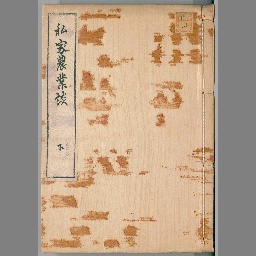 私家農業談
下